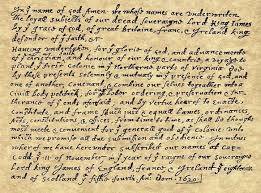 In yͤ name of god Amen. We whose names are underwriten,
the loyall subjects of our dread soveraigne Lord King James
by yͤ grace of god, of great Britaine, franc, & Ireland king,
defendor of yͤ faith, &c
Haveing undertaken, for yͤ glorie of god, and advancemente
of yͤ christian, and honour of our king & countrie, a voyage to
plant yͤ first colonie in yͤ Northerne parts of Virginia. Doe
by these presents solemnly & mutualy in yͤ presence of god, and
one of another, covenant, & combine our selves togeather into a
civill body politick; for
and furtherance of yͤ ends aforesaid; and by vertue hearof to enacte,
constitute, and frame such just & equall lawes, ordinances,
acts, constitutions, & offices, from time to time, as shall be thought
most meete & convenient for yͤ generall good of yͤ colonie: unto
which we promise all due submission and obedience. In witnes
wherof we have hereunder subscribed our names at Cap=
Codd yͤ 11 of November, in yͤ year of yͤ raigne of our soveraigne
Lord king James of England, franc, & Ireland yͤ eighteenth
and of Scotland yͤ fiftie fourth. An: Dom. 1620